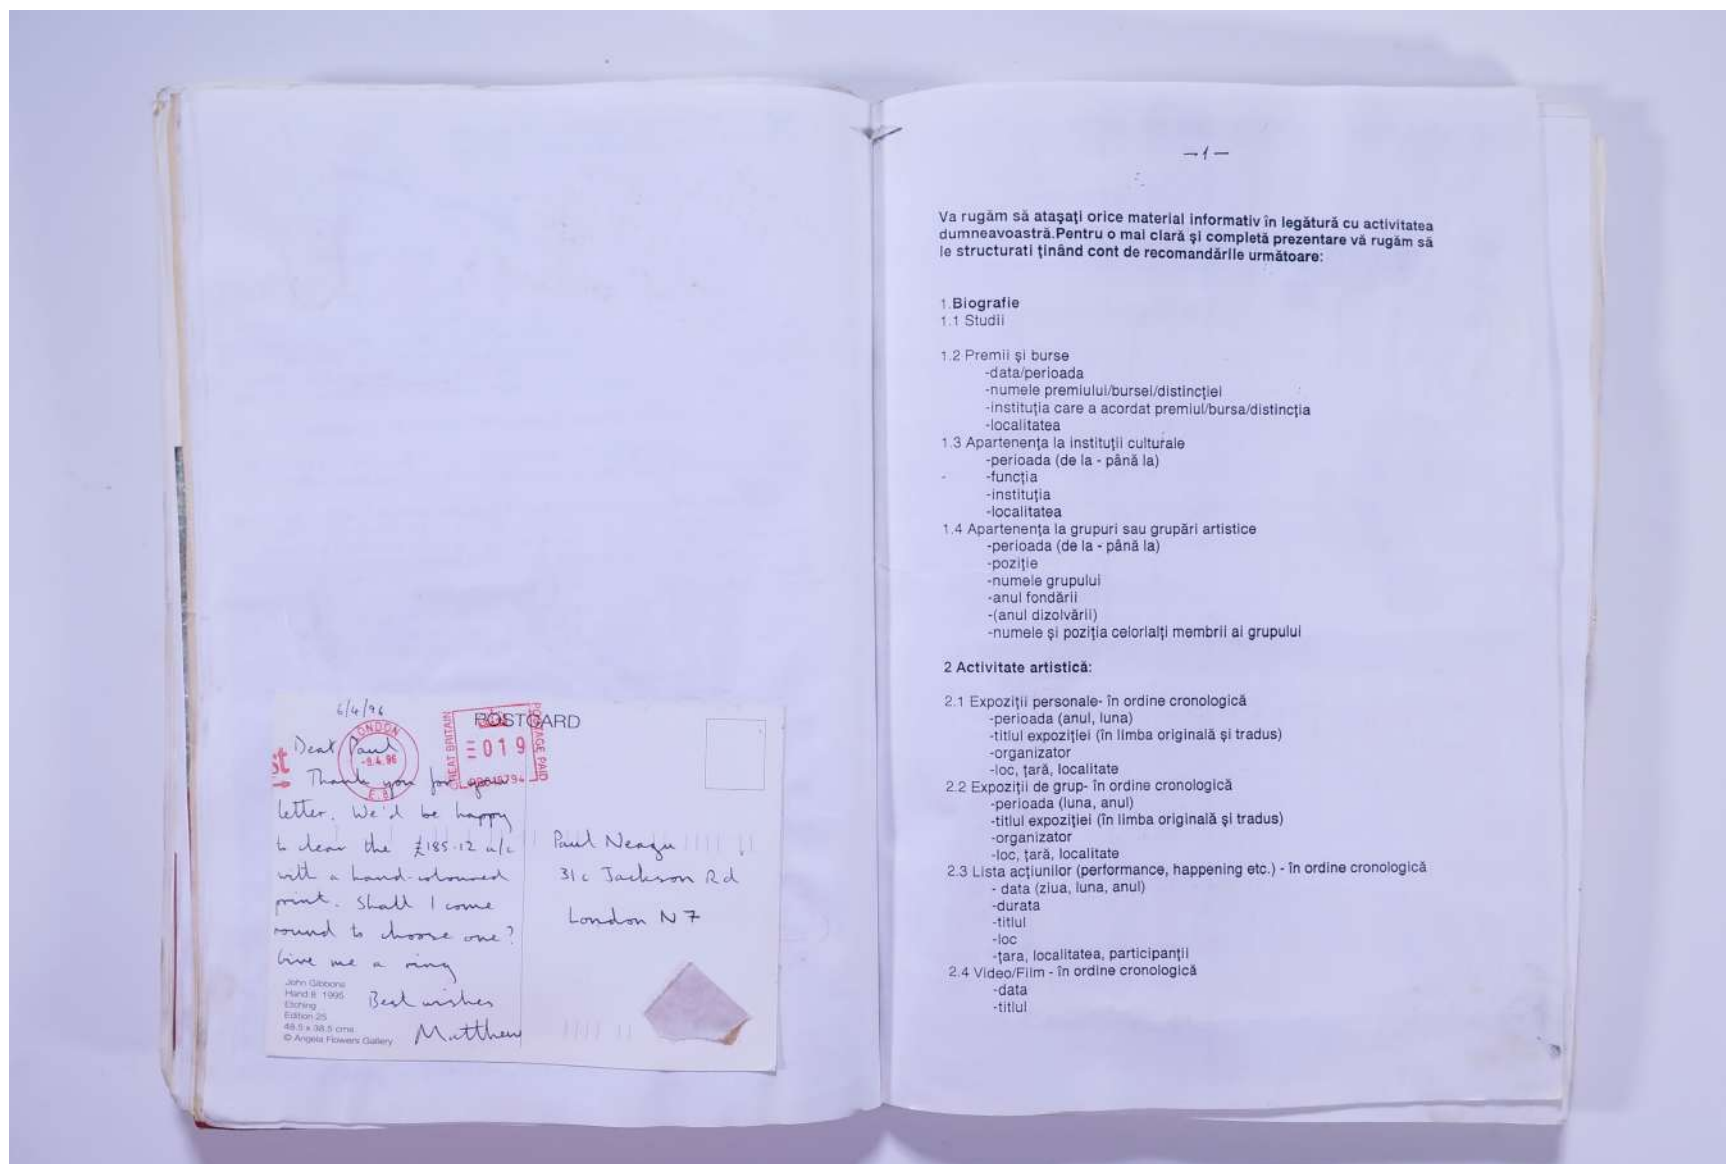 6/4/96
POSTCARD
LONDON
-9.4.96
E.8
GREAT BRITAIN
019
POSTAGE PAID
st
Dear Paul
Thank you for your
letter. We'd be happy
to clear the £185.12 a/c
with a hand-coloured
print. Shall I come
round to choose one?
Give me a ring
Best wishes
Matthew
John Gibbons
Hand II 1995
Etching
Edition 25
48.5 x 38.5 cms
© Angela Flowers Gallery
Paul Neagu
31c Jackson Rd
London N7
-1-
Va rugăm să ataşaţi orice material informativ în legătură cu activitatea
dumneavoastră.Pentru o mai clară şi completă prezentare vă rugăm să
le structurati ţinând cont de recomandările următoare:
1.Biografie
1.1 Studii
1.2 Premii şi burse
-data/perioada
-numele premiului/bursei/distincţiei
-instituţia care a acordat premiul/bursa/distincţia
-localitatea
1.3 Apartenenţa la instituţii culturale
-perioada (de la - până la)
-funcţia
-instituţia
-localitatea
1.4 Apartenenţa la grupuri sau grupări artistice
-perioada (de la - până la)
-poziţie
-numele grupului
-anul fondării
-(anul dizolvării)
-numele şi poziţia celorlalţi membrii ai grupului
2 Activitate artistică:
2.1 Expoziţii personale- în ordine cronologică
-perioada (anul, luna)
-titlul expoziţiei (în limba originală şi tradus)
-organizator
-loc, ţară, localitate
2.2 Expoziţii de grup- în ordine cronologică
-perioada (luna, anul)
-titlul expoziţiei (în limba originală şi tradus)
-organizator
-loc, ţară, localitate
2.3 Lista acţiunilor (performance, happening etc.) - în ordine cronologică
- data (ziua, luna, anul)
-durata
-titlul
-loc
-ţara, localitatea, participanţii
2.4 Video/Film - în ordine cronologică
-data
-titlul